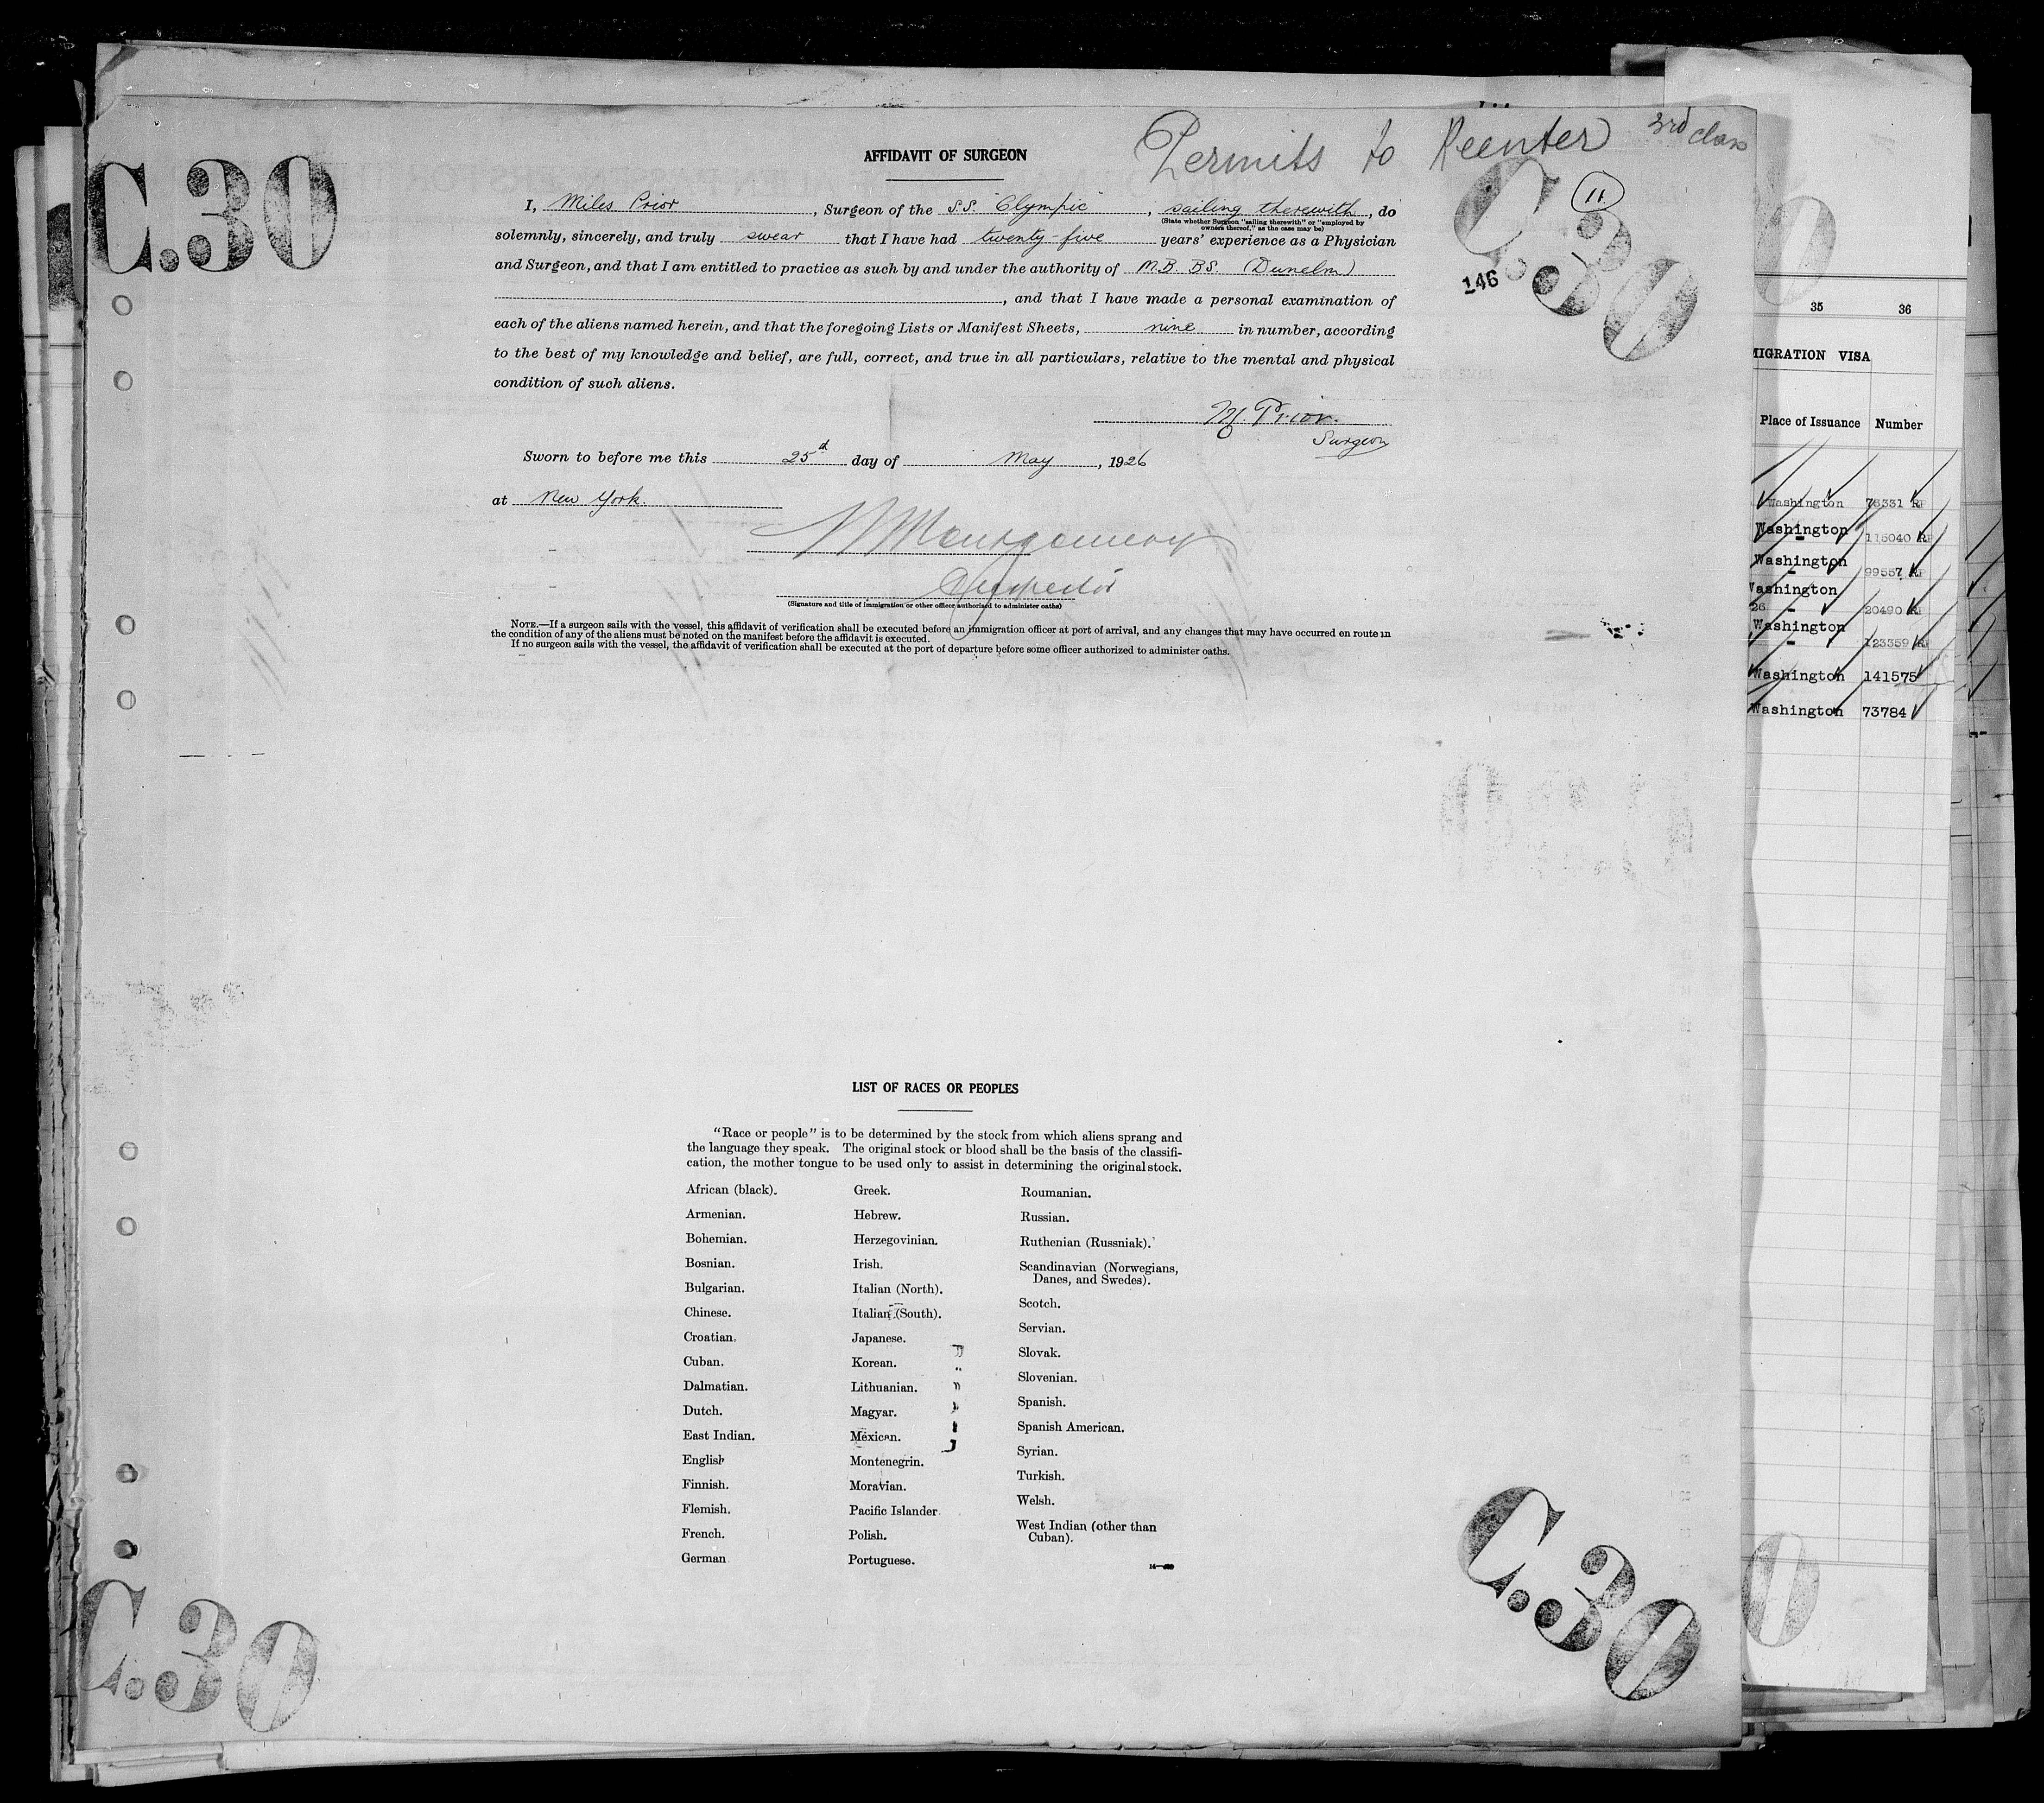 C.30
AFFIDAVIT OF SURGEON
Permits to Reenter 3rd class
11
C.30
146
I, Miles Prior, Surgeon of the S.S. Olympic, sailing therewith, do
(State whether Surgeon "sailing therewith" or "employed by
owners thereof," as the case may be)
solemnly, sincerely, and truly swear that I have had twenty-five years' experience as a Physician
and Surgeon, and that I am entitled to practice as such by and under the authority of M.B. B.S. (Dunelm)
, and that I have made a personal examination of
each of the aliens named herein, and that the foregoing Lists or Manifest Sheets, nine in number, according
to the best of my knowledge and belief, are full, correct, and true in all particulars, relative to the mental and physical
condition of such aliens.
M. Prior.
Surgeon
Sworn to before me this 25th day of May, 1926
at New York.
Montgomery
Inspector
(Signature and title of immigration or other officer authorized to administer oaths)
NOTE.—If a surgeon sails with the vessel, this affidavit of verification shall be executed before an immigration officer at port of arrival, and any changes that may have occurred en route in
the condition of any of the aliens must be noted on the manifest before the affidavit is executed.
If no surgeon sails with the vessel, the affidavit of verification shall be executed at the port of departure before some officer authorized to administer oaths.
LIST OF RACES OR PEOPLES
"Race or people" is to be determined by the stock from which aliens sprang and
the language they speak. The original stock or blood shall be the basis of the classifi-
cation, the mother tongue to be used only to assist in determining the original stock.
African (black).
Armenian.
Bohemian.
Bosnian.
Bulgarian.
Chinese.
Croatian.
Cuban.
Dalmatian.
Dutch.
East Indian.
English
Finnish.
Flemish.
French.
German
Greek.
Hebrew.
Herzegovinian.
Irish.
Italian (North).
Italian (South).
Japanese.
Korean.
Lithuanian.
Magyar.
Mexican.
Montenegrin.
Moravian.
Pacific Islander
Polish.
Portuguese.
Roumanian.
Russian.
Ruthenian (Russniak).
Scandinavian (Norwegians,
Danes, and Swedes).
Scotch.
Servian.
Slovak.
Slovenian.
Spanish.
Spanish American.
Syrian.
Turkish.
Welsh.
West Indian (other than
Cuban).
C.30
C.30
35 36
MIGRATION VISA
Place of Issuance Number
Washington 76331 RP
Washington 115040 RP
Washington 99557 RP
Washington
26 20490 RP
Washington 123359 RP
Washington 141575
Washington 73784